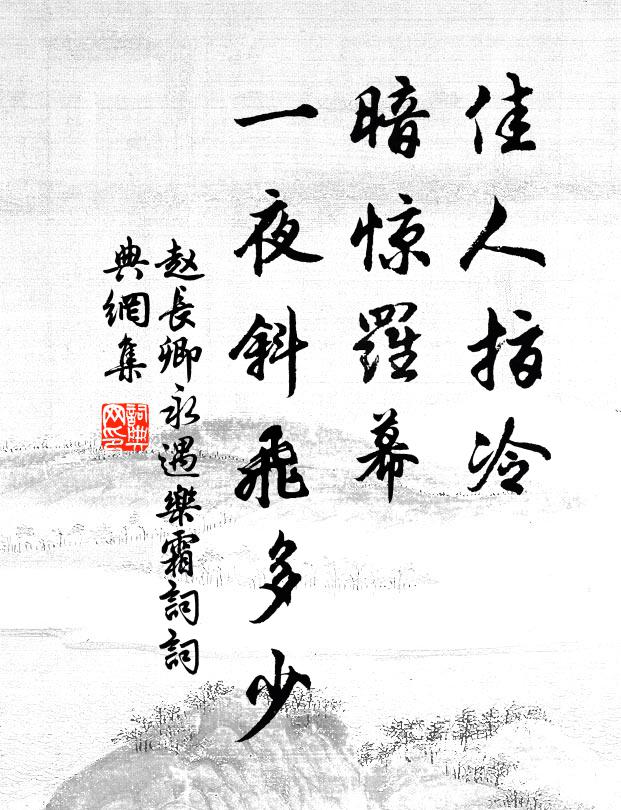 佳人指冷
暗惊羅幕
一夜斜飛多少
赵長卿永遇樂霜詞詞
典網集
詞典网印